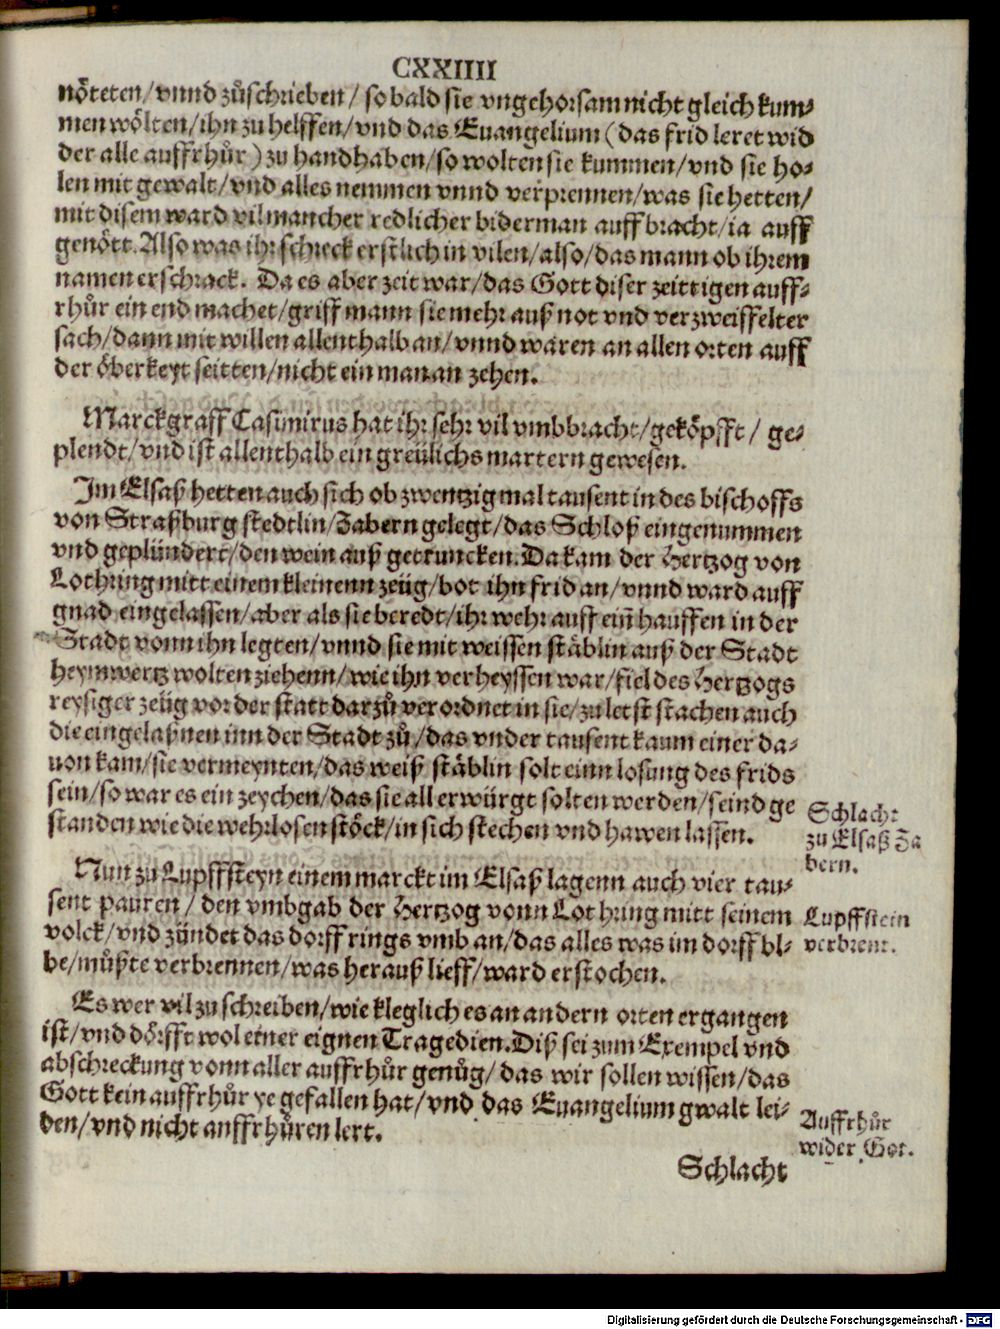 CXXIIII
nöteten/vnnd zůschrieben/ so bald sie vngehorsam nicht gleich kum-
men wölten/ihn zu helffen/vnd das Euangelium (das frid leret wid
der alle auffrhůr) zu handhaben/so wolten sie kummen/vnd sie ho-
len mit gewalt/vnd alles nemmen vnnd verprennen/was sie hetten/
mit disem ward vil mancher redlicher biderman auff bracht/ia auff
genött. Also was ihr schreck erstlich in vilen/also/das mann ob ihrem
namen erschrack. Da es aber zeit war/das Gott diser zeittigen auff-
rhůr ein end machet/griff mann sie mehr auß not vnd verzweiffelter
sach/dann mit willen allenthalb an/vnnd waren an allen orten auff
der öberkeyt seitten/nicht ein man an zehen.
Marckgraff Casimirus hat ihr sehr vil vmbbracht/geköpfft/ ge-
plendt/vnd ist allenthalb ein greülichs martern gewesen.
Im Elsaß hetten auch sich ob zwentzig mal tausent in des bischoffs
von Straßburg stedtlin/Zabern gelegt/das Schloß eingenummen
vnd geplündert/den wein auß getruncken. Da kam der Hertzog von
Lothring mitt einem kleinenn zeüg/bot ihn frid an/vnnd ward auff
gnad eingelassen/aber als sie beredt/ihr wehr auff ein̄ hauffen in der
Stadt vonn ihn legten/vnnd sie mit weissen stäblin auß der Stadt
heymwertz wolten ziehenn/wie ihn verheyssen war/fiel des Hertzogs
reysiger zeüg vor der statt darzů verordnet in sie/zu letst stachen auch
die eingelaßnen inn der Stadt zů/das vnder tausent kaum einer da-
uon kam/sie vermeynten/das weiß stäblin solt einn losung des frids
sein/so war es ein zeychen/das sie all erwürgt solten werden/seind ge
standen wie die wehrlosen stöck/in sich stechen vnd hawen lassen.
Schlacht
zu Elsaß Za
bern.
Nun zu Lupffsteyn einem marckt im Elsaß lagenn auch vier tau-
sent pauren/ den vmbgab der Hertzog vonn Lothring mitt seinem
volck/vnd zündet das dorff rings vmb an/das alles was im dorff bli-
be/müßte verbrennen/was herauß lieff/ward erstochen.
Lupffstein
verbrent.
Es wer vil zu schreiben/wie kleglich es an andern orten ergangen
ist/vnd dörfft wol einer eignen Tragedien. Diß sei zum Exempel vnd
abschreckung vonn aller auffrhůr genůg/das wir sollen wissen/das
Gott kein auffrhůr ye gefallen hat/vnd das Euangelium gwalt lei-
den/vnd nicht auffrhůren lert.
Auffrhůr
wider Got.
Schlacht
Digitalisierung gefördert durch die Deutsche Forschungsgemeinschaft - DFG